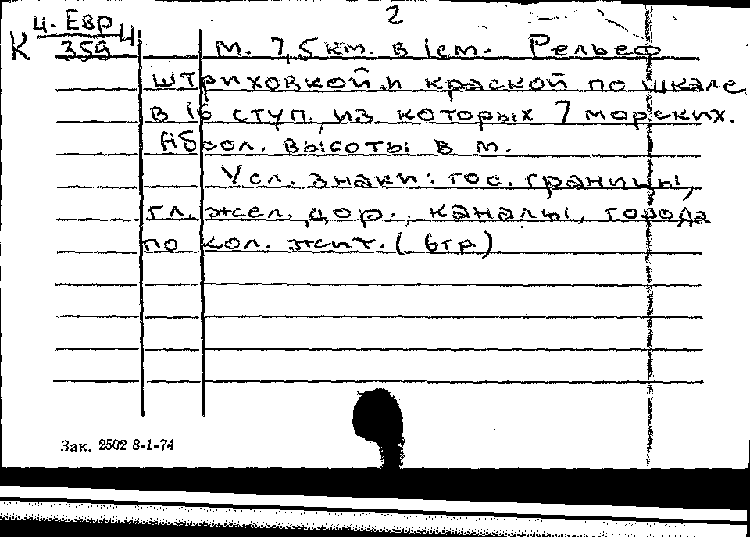 2
К Ц. Евр 4
359
М. 7,5 км. в 1 см. Рельеф
штриховкой и краской по шкале
в 16 ступ., из которых 7 морских.
Абсол. высоты в м.
Усл. знаки: гос. границы,
гл. жел. дор., каналы, города
по кол. жит. (6 гр)
Зак. 2502 8-1-74